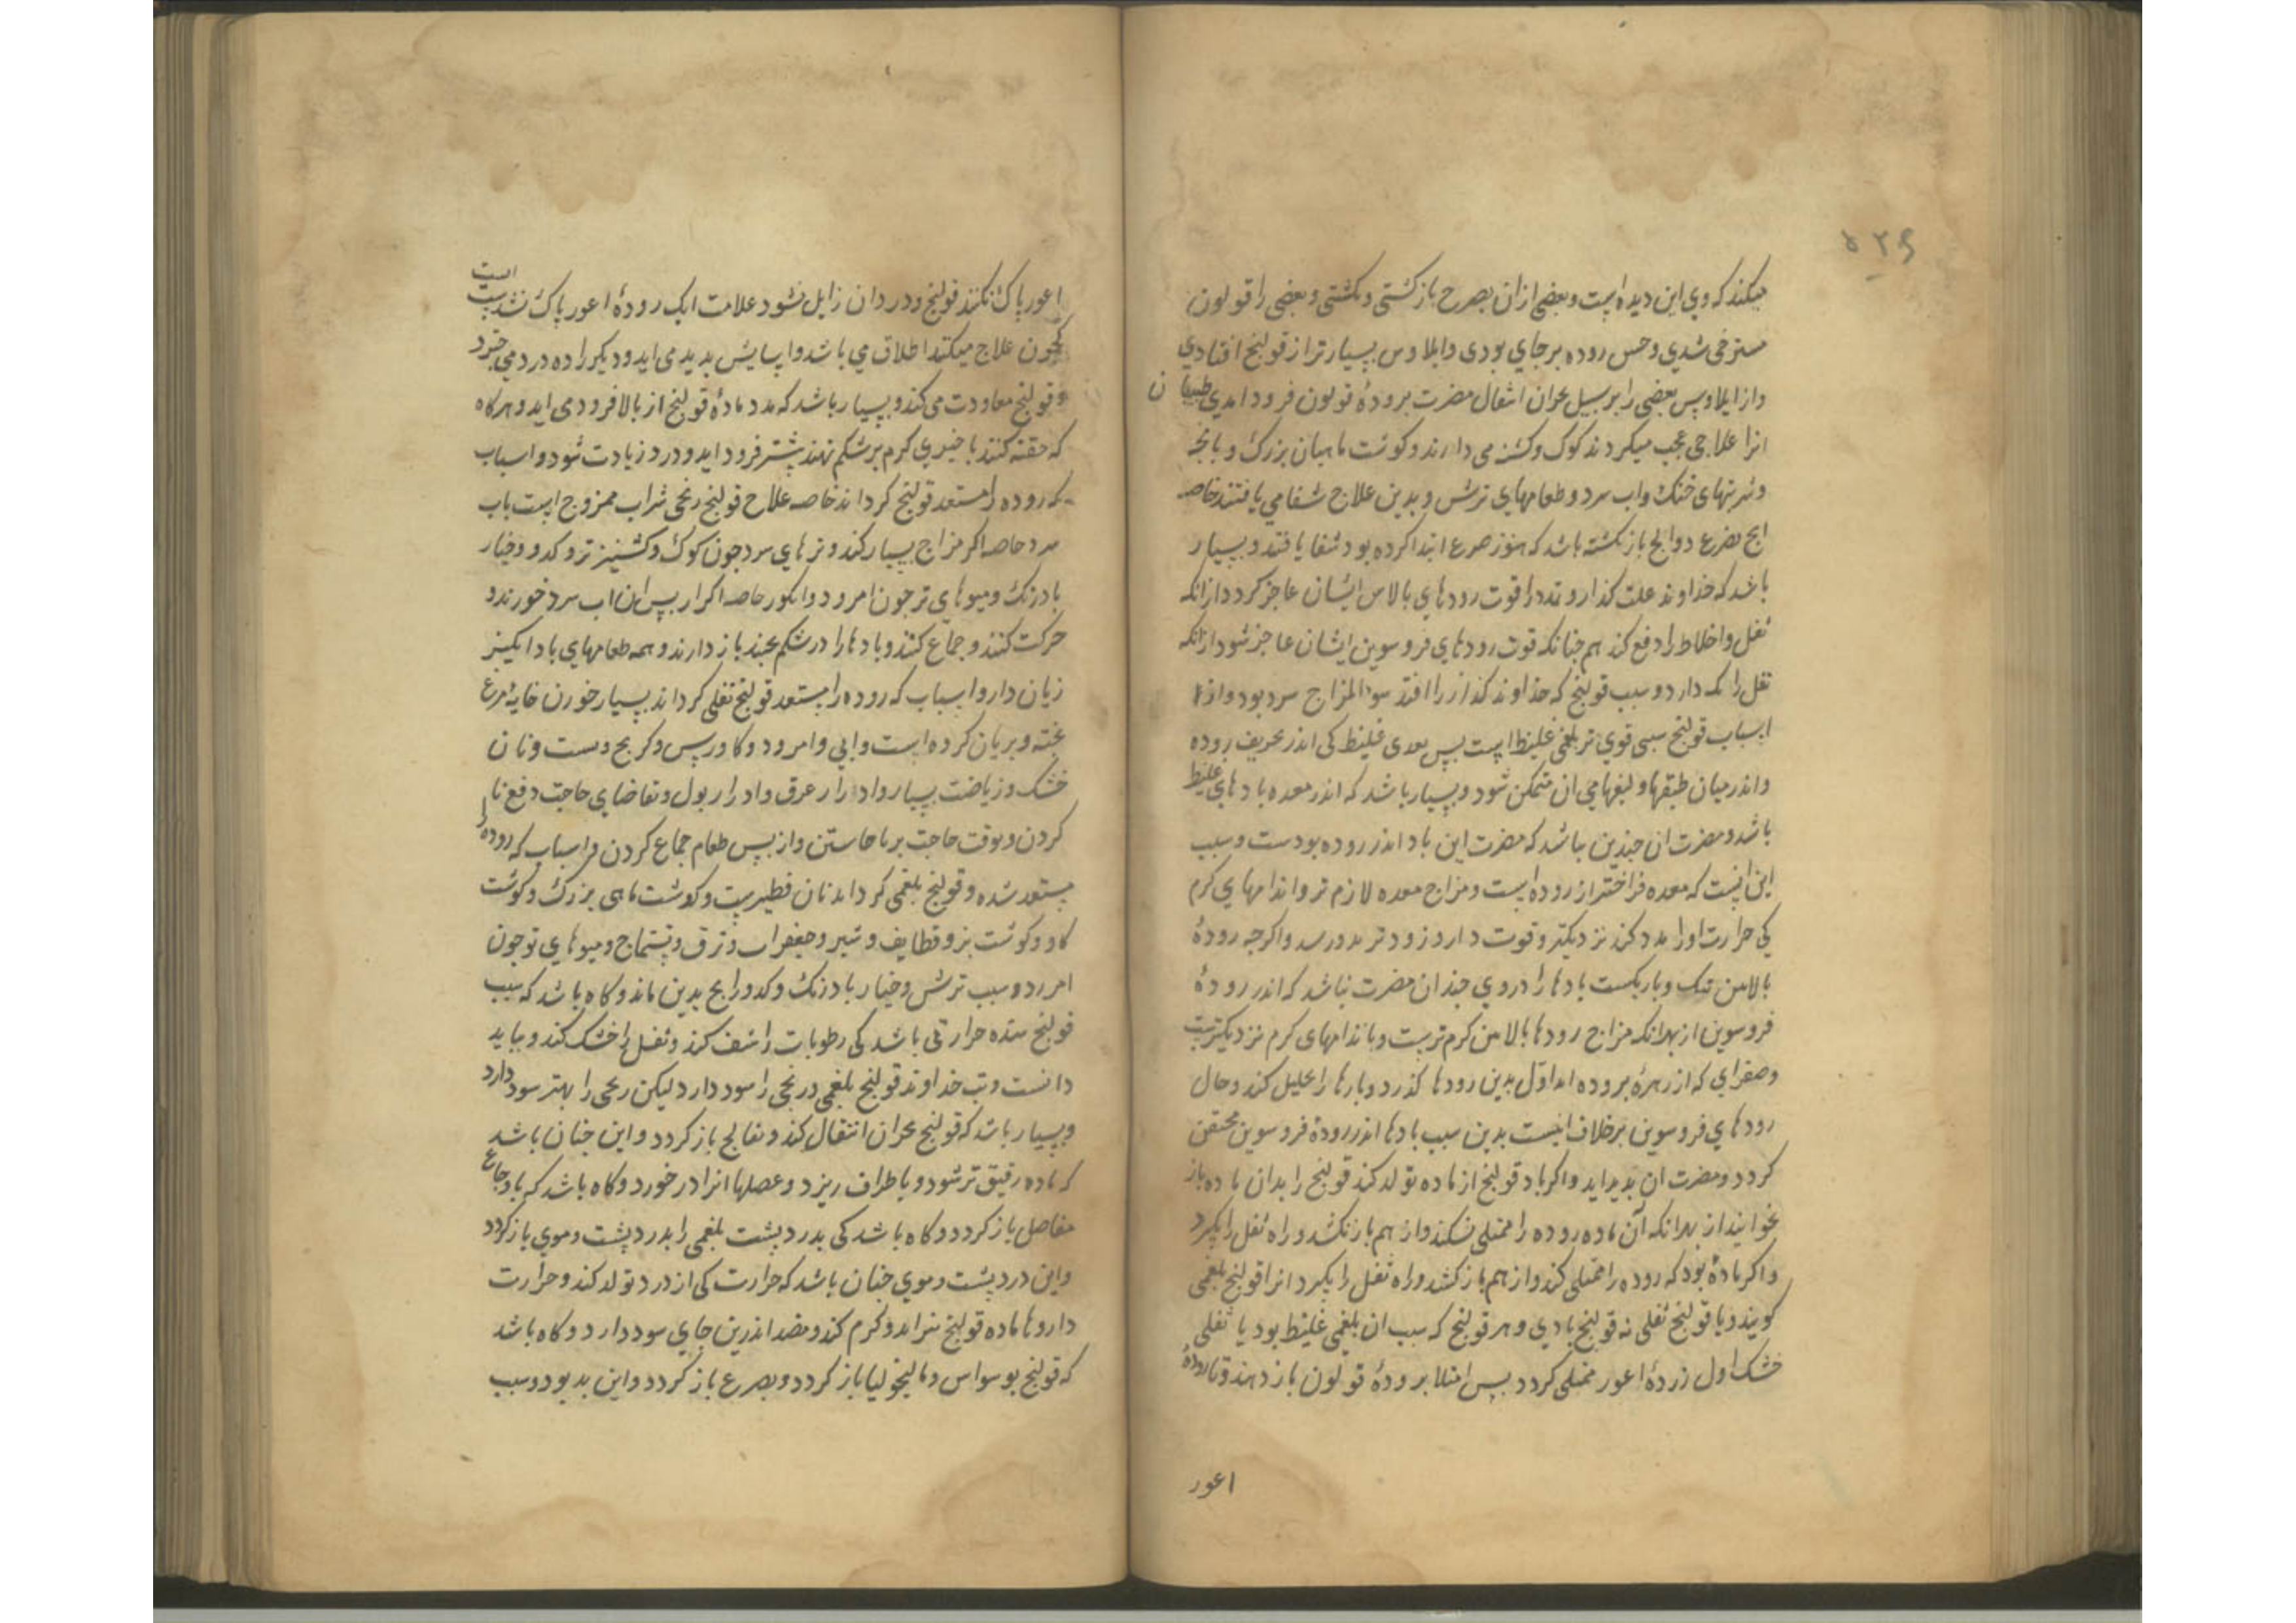 ۵۲۶
میکند که وی این دیده است و بعضی ازان بصرح باز کشتی و بکشتی و بعضی را قولون
مسترخی شدی و حس روده برجای بودی و ایلاوس بسیارتر از قولنج افتادی
و از ایلاوس بعضی را بر سبیل بحران انتقال مضرت بروده قولون فرود امدی طبیبان
انرا علاجی عجب میکردند کوک و کشنه می دارند و کوشت ماهیان بزرک و بانجه
و شربتهای خنک و اب سرد و طعامهای ترش و بدین علاج شفا می یافتند خاصه
انج بصرع دوالج باز نکشته باشد که هنوز صرع ابتدا کرده بود شفا یافتند و بسیار
باشد که خداوند علت کذارو تدد را قوت رودهای بالاس ایشان عاجز کردد ازانکه
ثفل و اخلاط را دفع کند هم جنانکه قوت رودهای فروسوین ایشان عاجز شود ازانکه
ثفل را نکه دارد و سبب قولنج که خداوند کذار را افتد سوالمزاج سرد بود و از
اسباب قولنج سببی قوی تر بلغمی غلیظ است بس بادی غلیظ کی اندر تجویف روده
و اندر میان طبقها و لیفهامی ان متمکن شود و بسیار باشد که اندر معده بادهای غلیظ
باشد و مضرت ان جندین نباشد که مضرت این باد اندر روده بودست و سبب
این انست که معده فراختر از روده است و مزاج معده لازم تر و اندامهای کرم
کی حرارت او را مدد کند نزدیکتر و قوت دارو زودتر بدو رسد و اکرجه روده
بالاین تنک و باریکست بادها را دروی جندان مضرت نباشد که اندر روده
فروسوین از بهر انکه مزاج رودها بالاین کرم ترست و باندامهای کرم نزدیکترست
و صفرای که از زهره بروده اید اول بدین رودها کذرد و بادها را تحلیل کند و حال
رودهای فروسوین برخلاف اینست بدین سبب بادها اندر روده فروسوین محتقن
کردد و مضرت ان بدید اید و اکر باد قولنج از ماده تولد کند قولنج را بدان ماده باز
نخوانند از بهر انکه آن ماده روده را ممتلی نکند و از هم باز نکشد و راه ثفل را بکیرد
و اکر ماده بود که روده را ممتلی کند و از هم باز کشد و راه ثفل را بکیرد انرا قولنج بلغمی
کویند و یا قولنج ثفلی نه قولنج بادی و هر قولنج که سبب ان بلغمی غلیظ بود یا ثفلی
خشک اول زردهٔ اعور ممتلی کردد بس امتلا برودهٔ قولون باز دهد و تا رودهٔ
اعور
اعور باک نکنند قولنج و درد ان زایل نشود علامت انک رودهٔ اعور باک نشدست است
کجون علاج میکنند اطلاق می باشد و اسایش بدید می اید و دیکر راه درد می خیزد
و قولنج معاودت می کند و بسیار باشد که مدد مادهٔ قولنج از بالا فرود می اید و هرکاه
که حقنه کنند یا خیری کرم بر شکم نهند بیشتر فرود اید و درد زیادت شود و اسباب
که روده را مستعد قولنج کرداند خاصه علاح قولنج ریحی شراب ممزوج است باب
سرد خاصه اکر مزاج بسیار کند و ترهای سرد جون کوک و کشنیز تر و کدو و خیار
بادرنک و میوهای تر جون امرود و انکور خاصه اکر از بس ان اب سرد خورند و
حرکت کنند و جماع کنند و بادها را در شکم بجند باز دارند و همه طعامهای باد انکیز
زیان دارد و اسباب که روده را مستعد قولنج ثفلی کرداند بسیار خوردن خایه مرغ
بخته و بریان کرده است و ابی و امرود و کاورس و کرنج و بست و نان
خشک و زیاضت بسیار و ادرار عرق و ادرار بول و تقاضای حاجت دفع نا
کردن و بوقت حاجت برنا خاستن و از بس طعام جماع کردن و اسباب که روده را
مستعد شده و قولنج بلغمی کرداند نان فطیرست و کوشت ماهی بزرک و کوشت
کاو و کوشت بز و قطایف و شیر و جغرات و ترف و تتماج و میوهای تر جون
امرود و سیب ترش و خیار بادرنک و کدو و رانج بدین ماند و کاه باشد که سبب
قولنج سده حرارتی باشد کی رطوبات را نشف کند و ثفل را خشک کند و بباید
دانست و تب خداوند قولنج بلغمی و ریحی را سود دارد لیکن ریحی را بهتر سود دارد
و بسیار باشد که قولنج بحران انتقال کند و بفالج باز کردد و این جنان باشد
که ماده رقیق تر شود و باطراف ریزد و عضلها انرا در خورد و کاه باشد که باوجاع
مفاصل باز کردد و کاه باشد کی بدرد بشت بلغمی را بدرد بشت و موی باز کردد
و این درد بشت و موی جنان باشد که حرارت کی از درد تولد کند و حرارت
داروها ماده قولنج بزاند و کرم کند و فصد اندرین جای سود دارد و کاه باشد
که قولنج بوسواس و مالیخولیا باز کردد و بصرع باز کردد و این بد بود و سبب